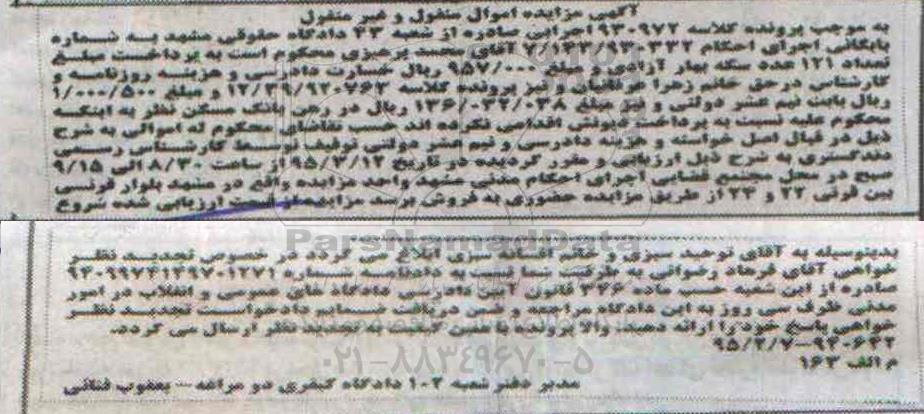 آگهی مزایده اموال منقول و غیر منقول
به موجب پرونده کلاسه ۹۷۲-۹۳ اجرایی صادره از شعبه ۴۳ دادگاه حقوقی مشهد به شماره
بایگانی اجرای احکام ۷/۱۴۳/۹۳-۳۳۲ آقای محمد محکوم است به پرداخت مبلغ
تعداد ۱۲۱ عدد سکه بهار آزادی و مبلغ ۹۵۷/۰۰۰ ریال خسارت دادرسی و هزینه روزنامه و
کارشناس درحق خانم زهرا عرفانیان و نیز پرونده کلاسه و مبلغ ۱/۰۰۰/۵۰۰
ریال بابت نیم عشر دولتی و نیز مبلغ ۱۳۶/۰۳۲/۰۳۸ ریال در رهن بانک مسکن نظر به اینکه
محکوم علیه نسبت به پرداخت اقدامی نکرده اند حسب تقاضای محکوم له اموالی به شرح
ذیل در قبال اصل خواسته و هزینه دادرسی و نیم عشر دولتی توقیف توسط کارشناس رسمی
دادگستری به شرح ذیل ارزیابی و مقرر گردیده در تاریخ ۹۵/۳/۱۲ از ساعت ۸/۳۰ الی ۹/۱۵
صبح در محل مجتمع قضایی اجرای احکام مدنی مشهد واحد مزایده واقع در مشهد بلوار قرنی
بین قرنی ۲۲ و ۲۴ از طریق مزایده حضوری به فروش برسد مزایده از قیمت ارزیابی شده شروع
ParsNamadData
بدینوسیله به آقای توحید سبزی و خانم افسانه سبزی ابلاغ می گردد در خصوص تجدید نظر
خواهی آقای فرهاد رضوانی به طرفیت شما نسبت به دادنامه شماره ۹۳۰۹۹۷۴۱۳۹۷۰۱۲۷۱
صادره از این شعبه حسب ماده ۳۴۶ قانون آیین دادرسی دادگاه های عمومی و انقلاب در امور
مدنی ظرف سی روز به این دادگاه مراجعه و ضمن دریافت ضمایم دادخواست تجدید نظر
خواهی پاسخ خود را ارائه دهید. والا پرونده با همین کیفیت به تجدید نظر ارسال می گردد.
۹۵/۲/۷-۹۲-۶۴۲
م الف ۱۶۳
۰۲۱-۸۸۳۴۹۶۷۰-۵
مدیر دفتر شعبه ۱۰۲ دادگاه کیفری دو مراغه – یعقوب فنائی